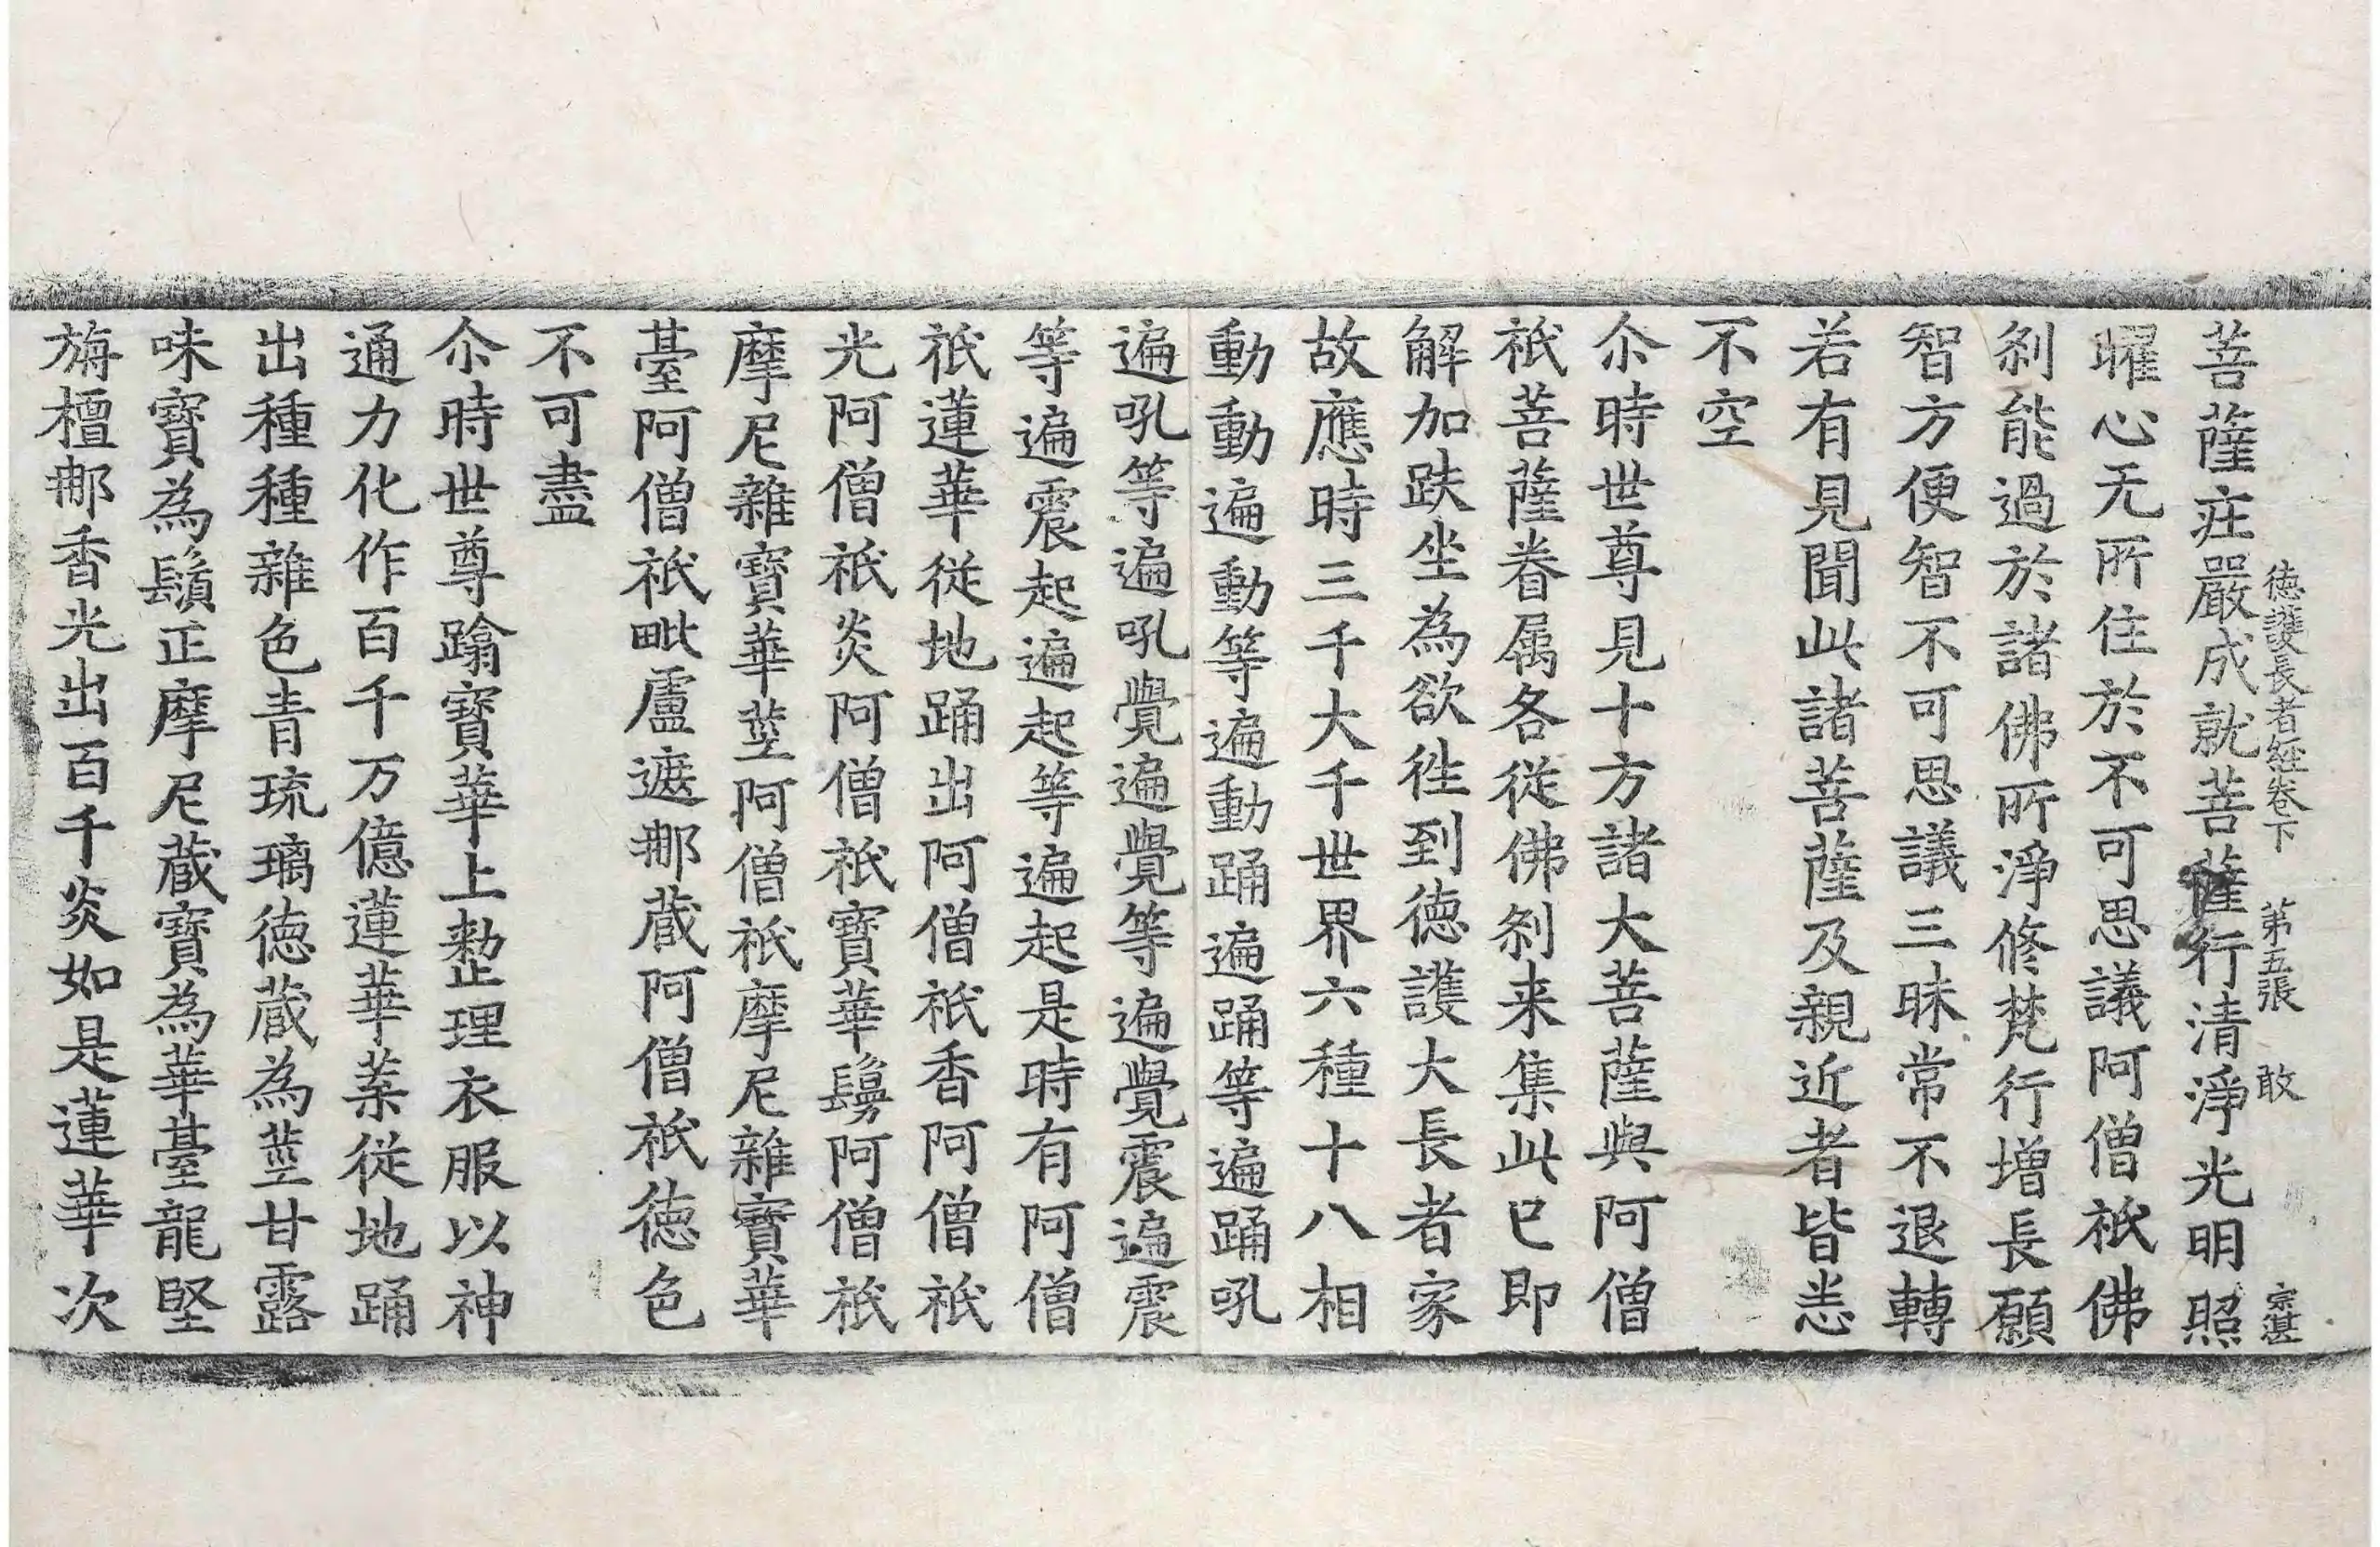 德護長者經卷下 第五張 敢 宗湛
菩薩庄嚴成就菩薩行清淨光明照
曜心无所住於不可思議阿僧祇佛
刹能過於諸佛所淨修梵行增長願
智方便智不可思議三昧常不退轉
若有見聞此諸菩薩及親近者皆悉
不空
尒時世尊見十方諸大菩薩與阿僧
祇菩薩眷属各從佛刹来集此已即
解加趺坐為欲徃到德護大長者家
故應時三千大千世界六種十八相
動動遍動等遍動踊遍踊等遍踊吼
遍吼等遍吼覺遍覺等遍覺震遍震
等遍震起遍起等遍起是時有阿僧
祇蓮華從地踊出阿僧祇香阿僧祇
光阿僧祇炎阿僧祇寶華鬘阿僧祇
摩尼雜寶華莖阿僧祇摩尼雜寶華
臺阿僧祇毗盧遮那蔵阿僧祇德色
不可盡
尒時世尊踰寶華上整理衣服以神
通力化作百千万億蓮華葉從地踊
出種種雜色青琉璃德蔵為莖甘露
味寶為鬚正摩尼蔵寶為華臺龍堅
旃檀那香光出百千炎如是蓮華次